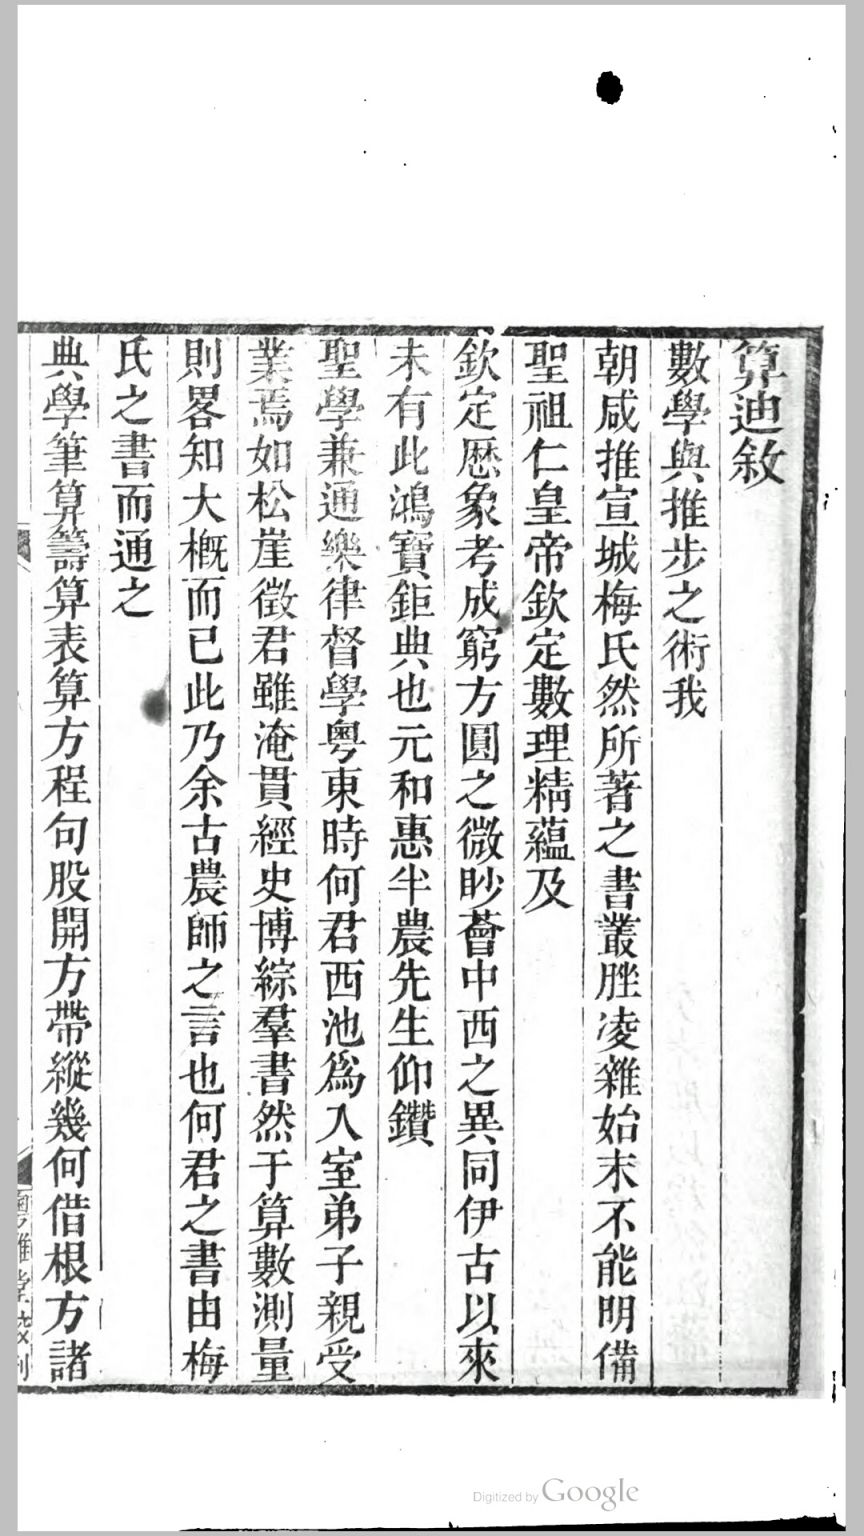 算迪敘
數學與推步之術我
朝咸推宣城梅氏然所著之書叢脞凌雜始末不能明備
聖祖仁皇帝欽定數理精蘊及
欽定歷象考成窮方圓之微眇薈中西之異同伊古以來
未有此鴻寶鉅典也元和惠半農先生仰鑽
聖學兼通樂律督學粵東時何君西池爲入室弟子親受
業焉如松崖徵君雖淹貫經史博綜羣書然于算數測量
則畧知大槪而已此乃余古農師之言也何君之書由梅
氏之書而通之
典學筆算籌算表算方程句股開方帶縱幾何借根方諸
粵雅堂
刊
Digitized by Google